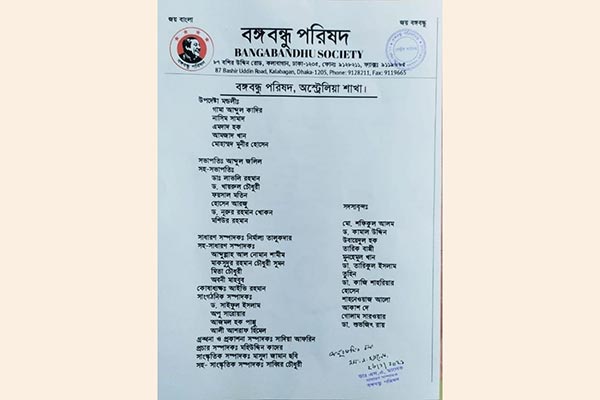 জয় বাংলা
জয় বঙ্গবন্ধু
বঙ্গবন্ধু পরিষদ
BANGABANDHU SOCIETY
৮৭ বশির উদ্দিন রোড, কলাবাগান, ঢাকা-১২০৫, ফোনঃ ৯১২৮২১১, ফ্যাক্সঃ
87 Bashir Uddin Road, Kalabagan, Dhaka-1205, Phone: 9128211, Fax: 9119665
বঙ্গবন্ধু পরিষদ
বঙ্গবন্ধু পরিষদ, অস্ট্রেলিয়া শাখা।
উপদেষ্টা মন্ডলীঃ
গামা আব্দুল কাদির
নাসিম সামাদ
এমদাদ হক
আমজাদ খান
মোহাম্মদ মুনীর হোসেন
সভাপতিঃ আব্দুল জলিল
সহ-সভাপতিঃ
ডাঃ লাভলি রহমান
ড. খায়রুল চৌধুরী
ফয়সাল মতিন
হোসেন আরজু
ড. নুরুর রহমান খোকন
মশিউর রহমান
সাধারণ সম্পাদকঃ নির্মাল্য তালুকদার
সহ-সাধারণ সম্পাদকঃ
আব্দুল্লাহ আল নোমান শামীম
মাকসুদুর রহমান চৌধুরী সুমন
মিতা চৌধুরী
অবনী মাহবুব
কোষাধ্যক্ষঃ আইভি রহমান
সাংগঠনিক সম্পাদকঃ
ড. সাইফুল ইসলাম
অপু সারোয়ার
আজমল হক পাপ্পু
আলী আশরাফ হিমেল
গ্রন্থনা ও প্রকাশনা সম্পাদকঃ সাদিয়া আফরিন
প্রচার সম্পাদকঃ মহিউদ্দিন কাদের
সাংস্কৃতিক সম্পাদকঃ মাসুদা জামান ছবি
সহ- সাংস্কৃতিক সম্পাদকঃ সাব্বির চৌধুরী
সদস্যবৃন্দঃ
মো. শফিকুল আলম
ড. কামাল উদ্দিন
উবায়েদুল হক
তারিক বাপ্পী
মুনহেমুল খান
ডা. তারিকুল ইসলাম
তুহিন
ডা. কাজি শাহরিয়ার
হোসেন
শাহনেওয়াজ আলো
আকাশ দে
গোলাম সারওয়ার
ডা. শুভজিৎ রায়
সাধারণ সম্পাদক
বঙ্গবন্ধু পরিষদ